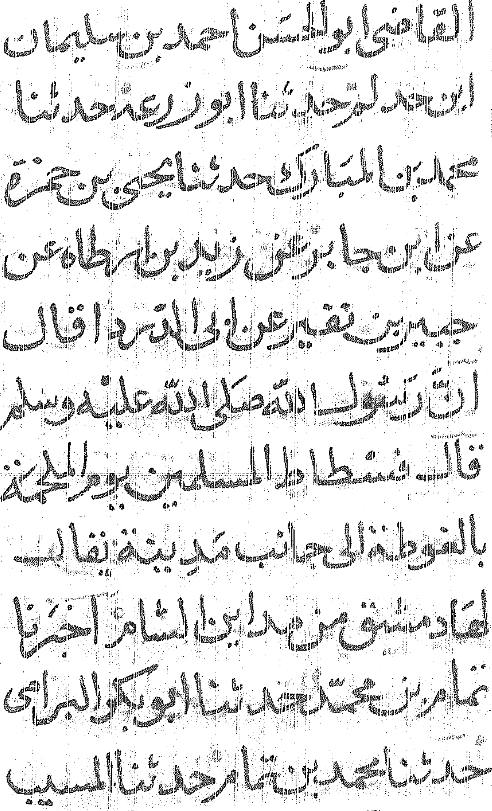 القاضى ابو الحسن احمد بن سليمان
ابن حذلم حدثنا ابو زرعة حدثنا
محمد بن المبارك حدثنا يحيى بن حمزة
عن ابن جابر عن زيد بن ارطاه عن
جبير بن نفير عن ابى الدردا قال
انَّ رَسُول الله صَلى الله عليْه وسلم
قال فسطاط المسلمين يوم الملحمَة
بالغوطة الى جانب مَدِينة يقال
لهَا دمشق من مداين الشام اخبَرنا
تمام بن محمّد حدثنا ابو بكر البرامى
حدثنا محمد بن تمام حدثنا المسيب